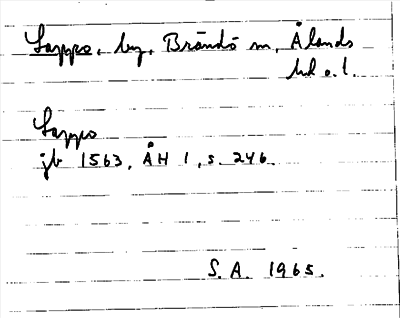 Lappo, by, Brändö sn, Ålands
hd o.l.
Lappo
jb 1563, ÅH 1, s. 246.
S. A. 1965.